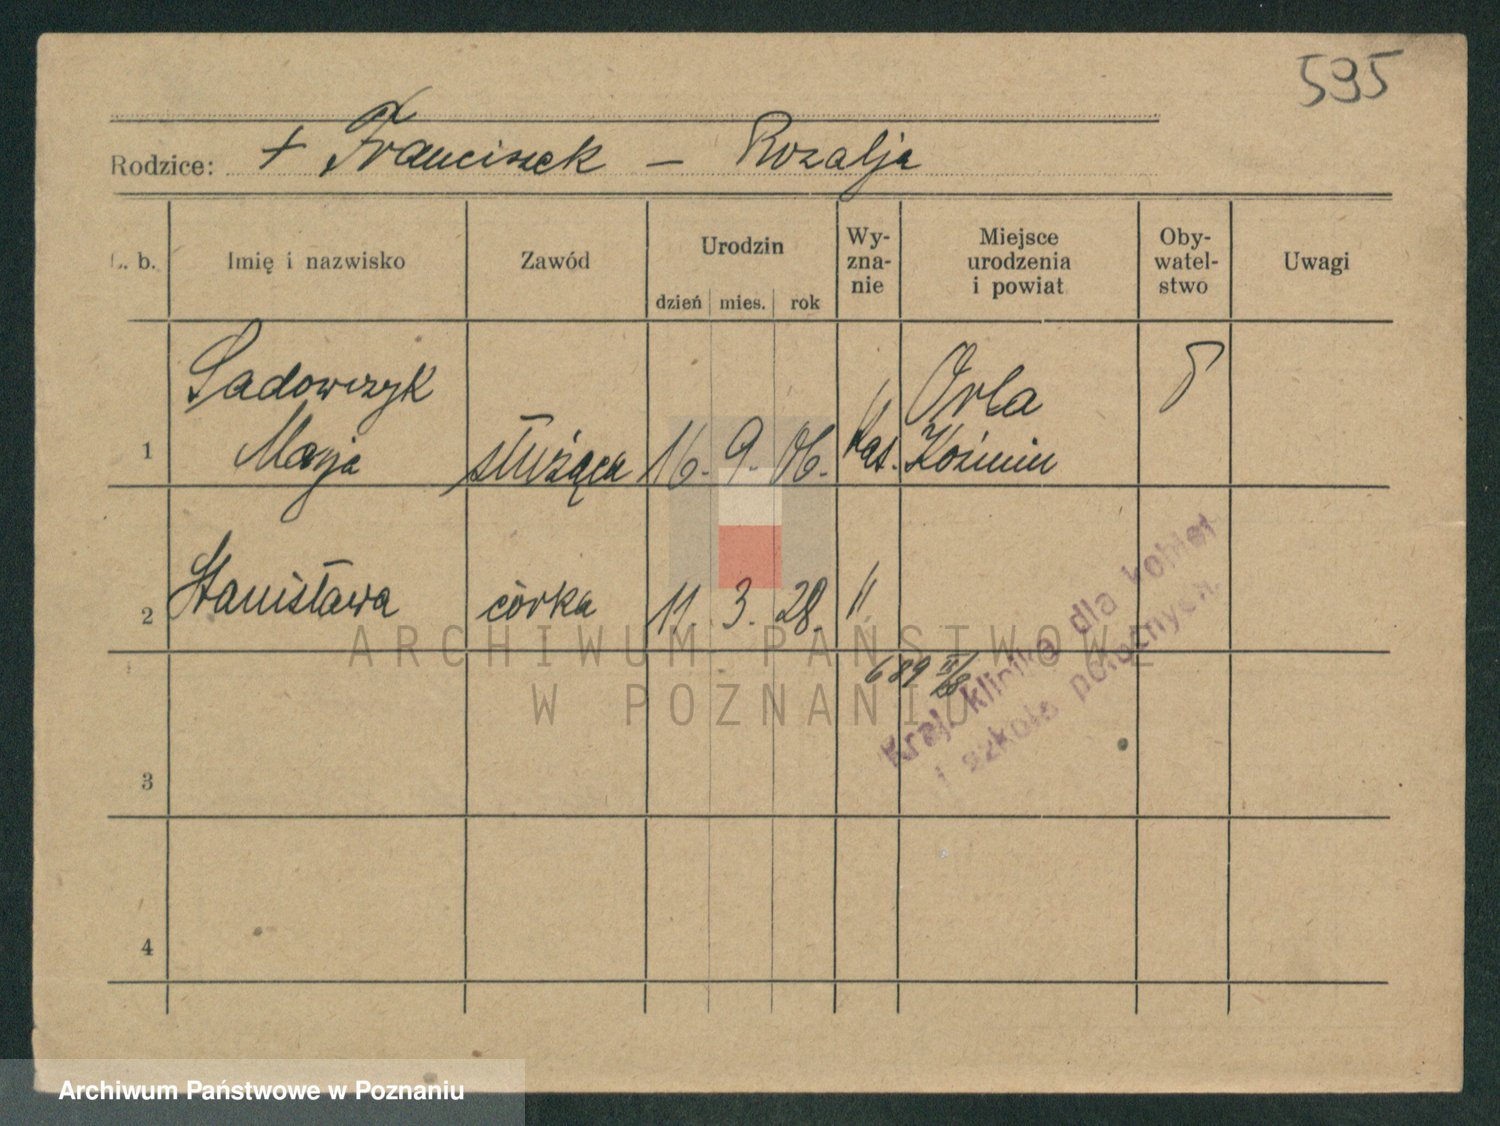 595
Rodzice: + Franciszek – Rozalja
L. b. Imię i nazwisko Zawód Urodzin dzień mies. rok Wy-zna-nie Miejsce urodzenia i powiat Oby-watel-stwo Uwagi
Sadowczyk
1 Marja służąca 16. 9. 06. kat. Orla Koźmin
2 Stanisława córka 11. 3. 28. "
689
Kraj. klinika dla kobiet
i szkoła położnych.
3
4
ARCHIWUM PAŃSTWOWE
W POZNANIU
Archiwum Państwowe w Poznaniu